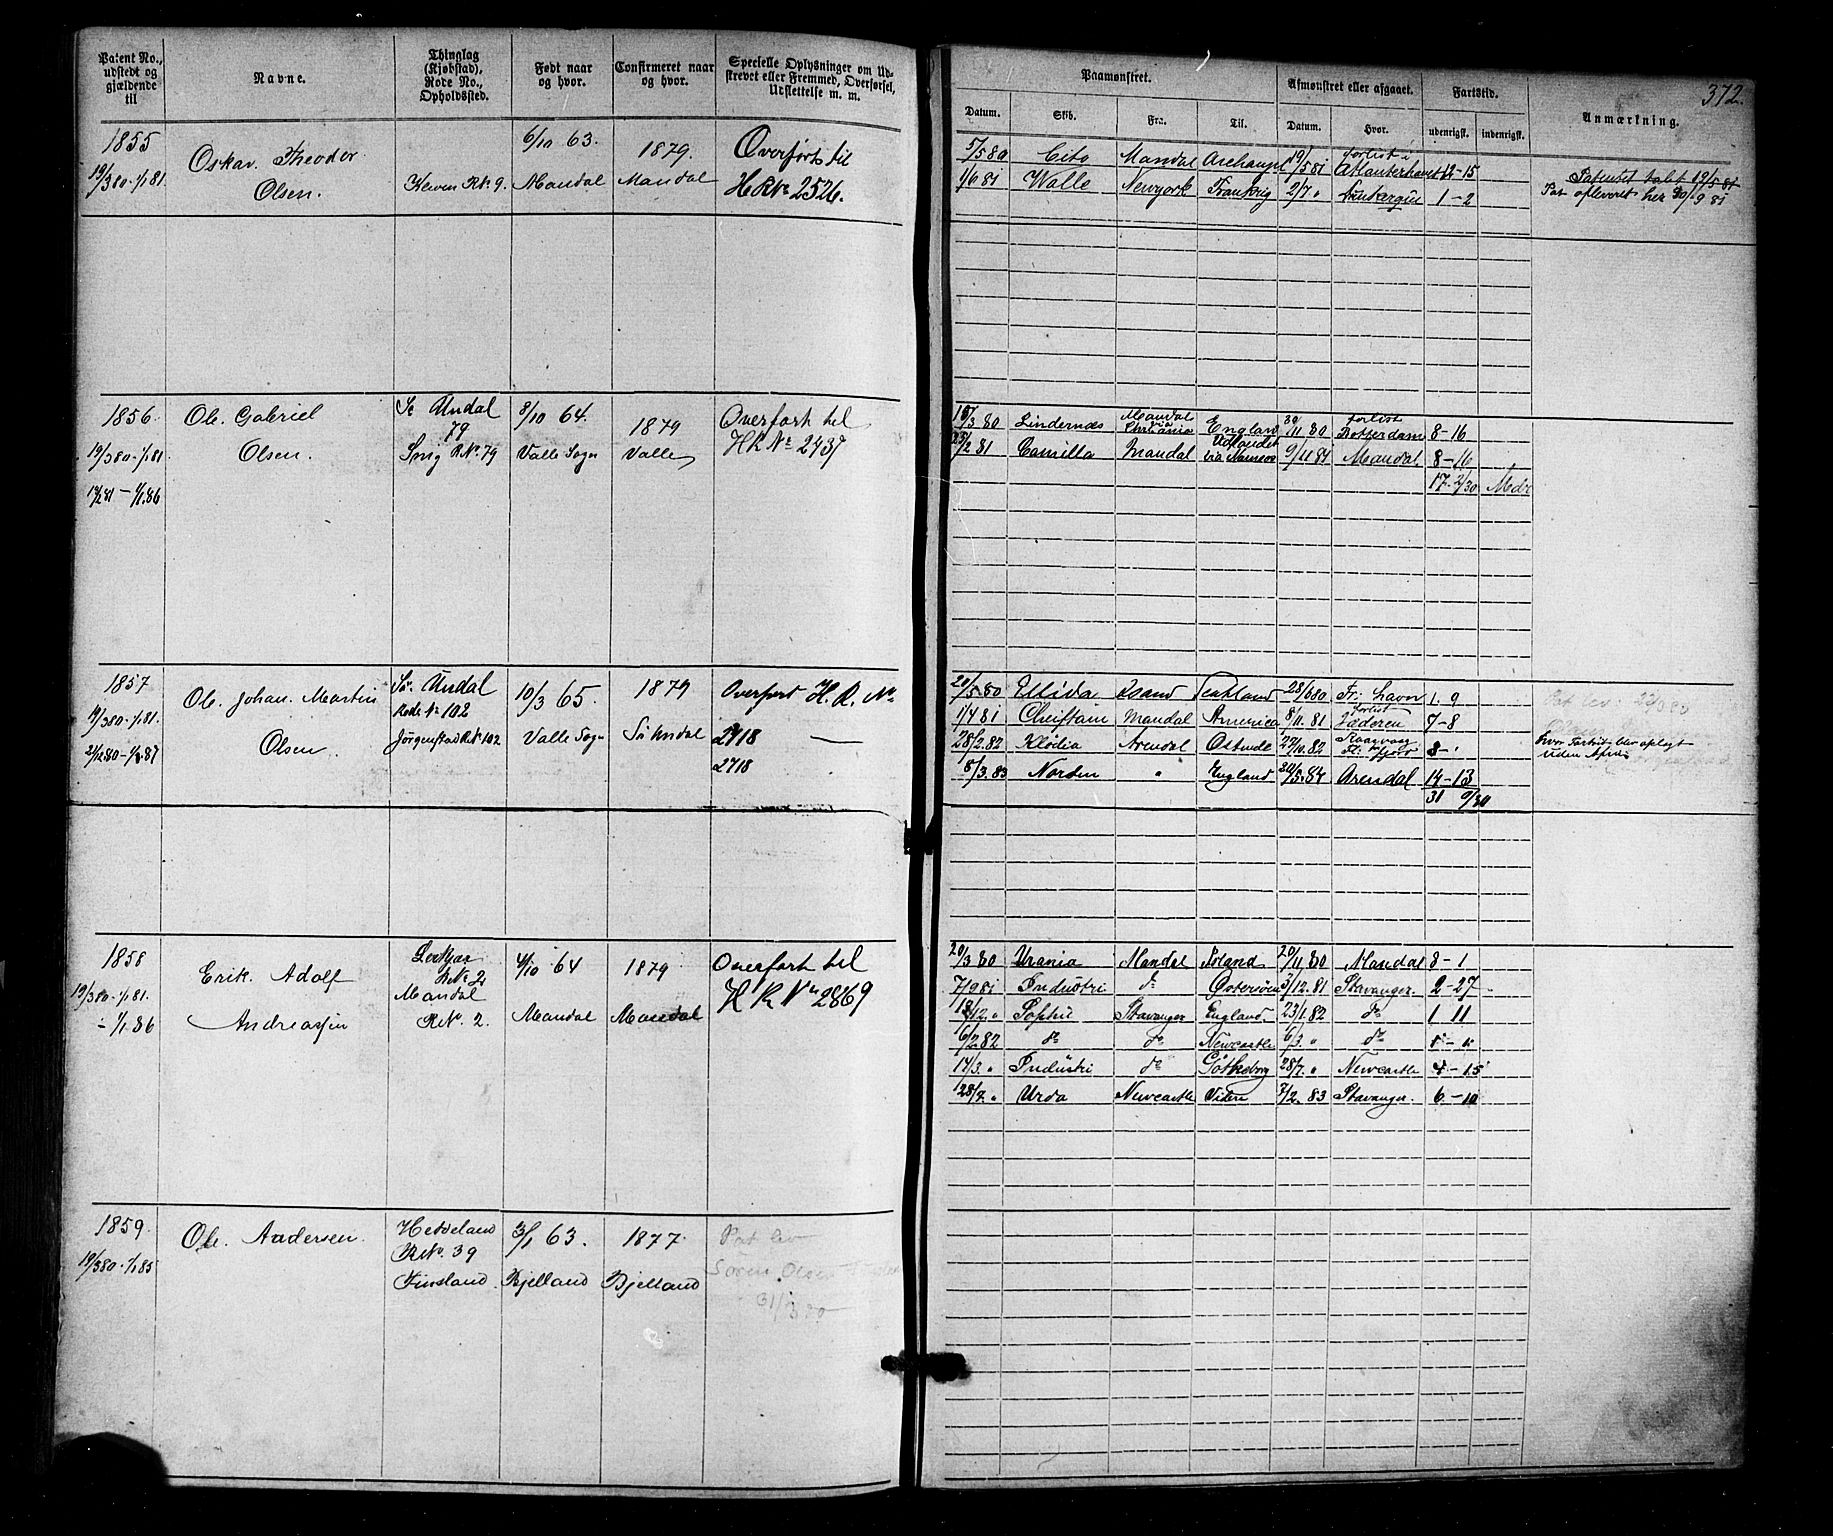 Patent No., udstedt og gjældende til
Navne.
Thinglag (Kjøbstad), Rode No., Opholdssted.
Født naar og hvor.
Confirmeret naar og hvor.
Specielle Oplysninger om Udstrevet eller Fremmed, Overførsel, Udslettelse m. m.
Paamønstret.
Afmønstret eller afgaaet.
Fartstid.
Anmærkning.
372.
Datum.
Skib.
Fra.
Til.
Datum.
Hvor.
udenrigsk.
indenrigsk.
1855
19/3 80 - 1/1 81
Oskar Theodor
Olsen.
R.No. 9.
6/10 63.
Mandal
1879.
Mandal
Overført til
H R No 2526.
5/5 80 Cito Mandal Archangel 19/5 81 forlist i Atlanterhavet 12-15
1/6 81 Walle Newyork Frankrig 2/7 " 1-2
Patentet tabt 19/5 81
Pat opleveret her 30/9 81
1856.
19/3 80 - 1/1 81
- 1/1 86
Ole Gabriel
Olsen.
Sr Undal
79
R No. 79
8/10 64.
Valle Sogn
1879
Valle
Overført til
H R No 2437
Lindernæs Mandal via Christiania England 11 80 forlist Rotterdam 8-16
Camilla Mandal Udlandet via 9/11 84 Mandal. 8-16
17. 2/30
1857
19/3 80 - 1/1 81.
Ole Johan Martin
Olsen
Sr. Undal
Rode No 102
Jørgenstad R.No. 102
10/3 65.
Valle Sogn
1879
Sr Undal
Overført H. R. No
2718
2718
20/5 80 Ellida Skotland 28/6 80 Fr: havn 1. 9
1/4 81 Mandal America 8/11. 81 forlist Jæderen 7-8
28/2. 82 Klödia Arendal Ostende 27/10. 82 8-
8/3. 83 Norden " England 20/5. 84 Arendal 14-13
31 9/30
Pat lev: 22/3 80
hvor Fartstid blev oplagt
uden
1858
19/3 80 - 1/1 81.
- 1/1 86
Erik Adolf
Andreassen
R No. 2
Mandal
R No. 2.
4/10 64
Mandal
1879
Mandal
Overført til
H R No 2869
20/3 80 Urania Mandal Island 20/11 80 Mandal 8-1
7/9 81 Industri do Østersøen 3/12. 81 Stavanger. 2-27
12. " Sophie Stavanger England. 23/1. 82 do 1 11
6/2 82 do do Newcastle 6/3. " do
17/3. " Industri do Götheborg 28/7. " Newcastle 4-15
28/7. " Urda Newcastle Videre 7/2. 83 Stavanger. 6-10
1859.
19/3 80 - 1/1 85
Ole Andersen
Hetveland
R No. 39
Finsland
3/1 63.
Bjelland
1877.
Bjelland
Pat lev
Søren Olsen
31/3 80